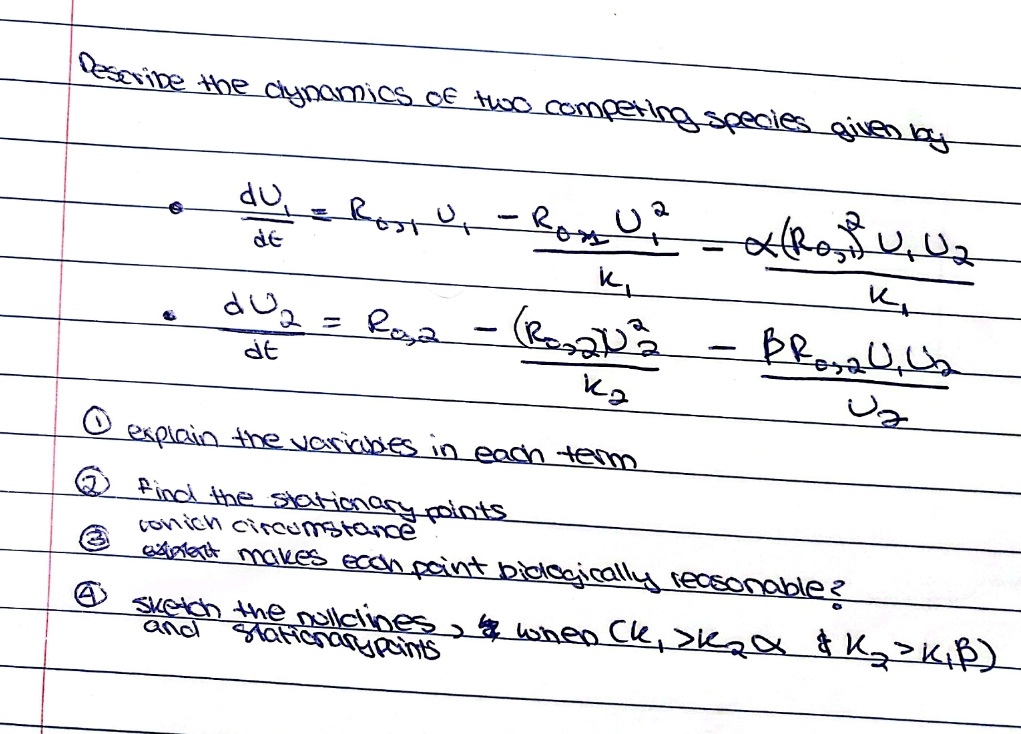 Describe the dynamics of two competing species given by
• dU₁/dt = R₀,₁ U₁ - R₀,₁ U₁²/K₁ - α(R₀,₁)² U₁ U₂/K₁
• dU₂/dt = R₀,₂ - (R₀,₂)U₂²/K₂ - βR₀,₂ U₁ U₂/U₂
① explain the variables in each term
② find the stationary points
③ which circumstance makes each point biologically reasonable?
④ sketch the nullclines, when (K₁ > K₂α & K₂ > K₁β)
and stationary points